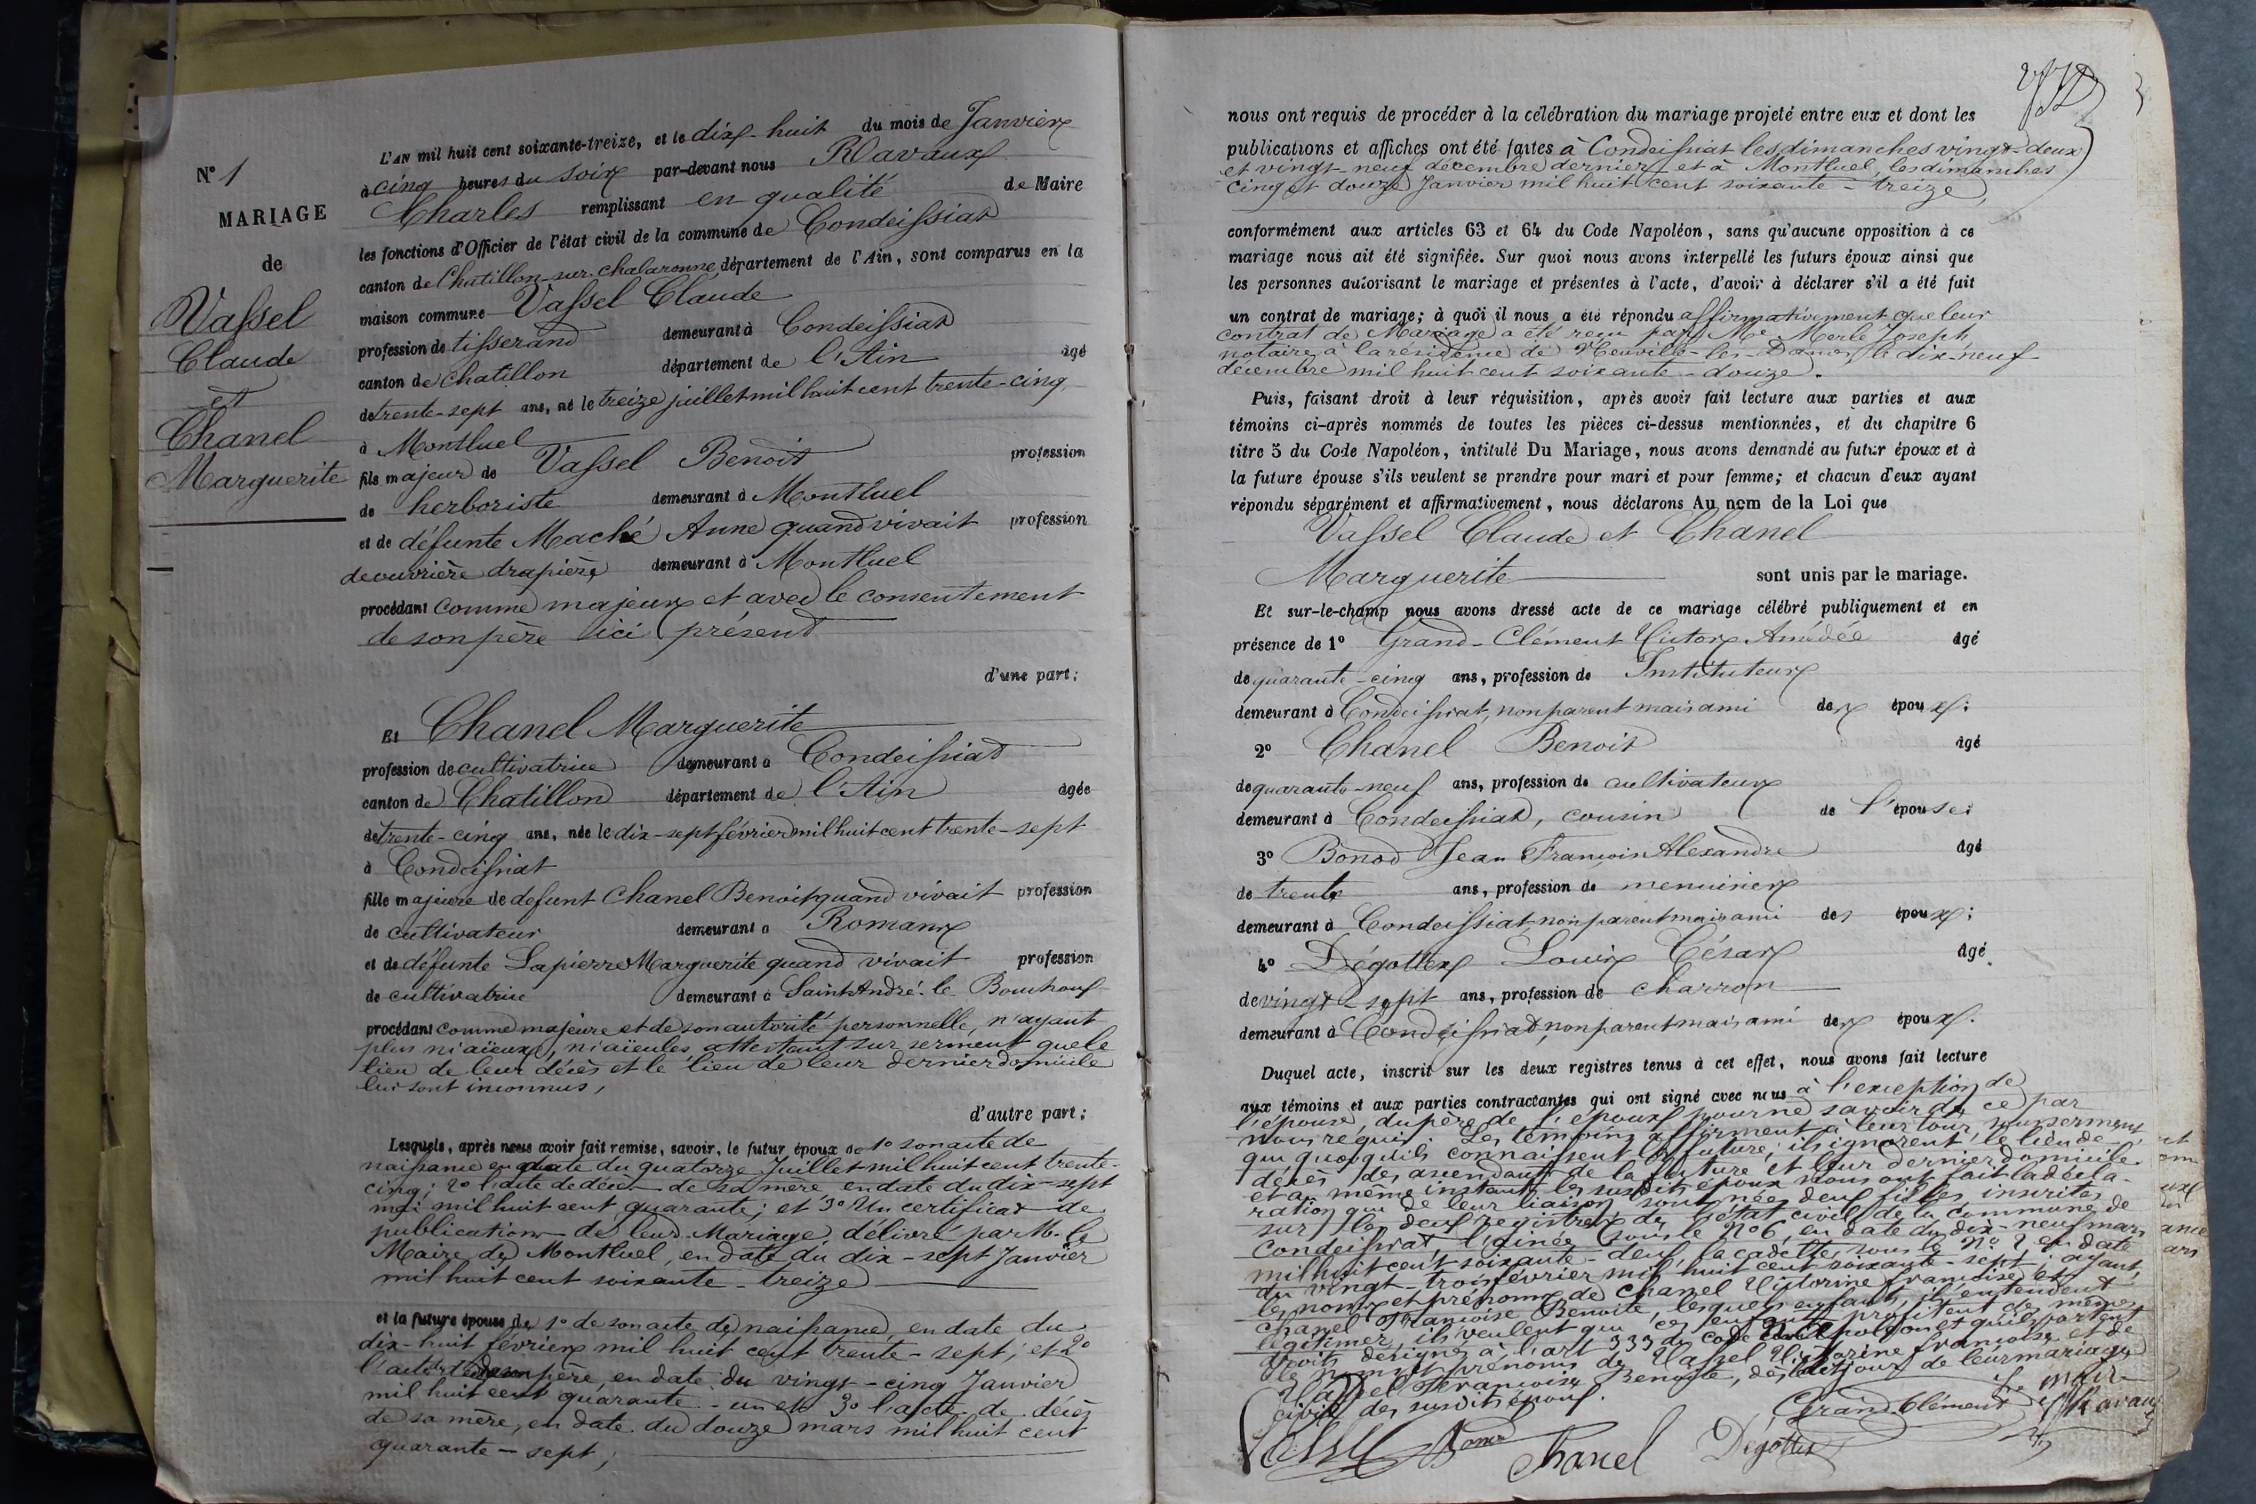 N° 1
MARIAGE
de
Vassel
Claude
et
Chanel
Marguerite
L'AN mil huit cent soixante-treize, et le dix-huit du mois de Janvier
à cinq heures du soir par-devant nous Ravaux
Charles remplissant en qualité de Maire
les fonctions d'Officier de l'état civil de la commune de Condeissiat
canton de Chatillon-sur-Chalaronne, département de l'Ain, sont comparus en la
maison commune Vassel Claude
profession de tisserand demeurant à Condeissiat
canton de Chatillon département de l'Ain âgé
de trente-sept ans, né le treize juillet mil huit cent trente-cinq
à Montluel
fils majeur de Vassel Benoit profession
de herboriste demeurant à Montluel
et de défunte Maché Anne quand vivait profession
de ouvrière drapière demeurant à Montluel
procédant comme majeur et avec le consentement
de son père ici présent
d'une part;
Et Chanel Marguerite
profession de cultivatrice demeurant à Condeissiat
canton de Chatillon département de l'Ain âgée
de trente-cinq ans, née le dix-sept février mil huit cent trente-sept
à Condeissiat
fille majeure de defunt Chanel Benoit quand vivait profession
de cultivateur demeurant à Romans
et de défunte Lapierre Marguerite quand vivait profession
de cultivatrice demeurant à Saint André-le Bouchoux
procédant comme majeure et de son autorité personnelle, n'ayant
plus ni aïeux, ni aïeules, attestant sur serment que le
lieu de leur décès et le lieu de leur dernier domicile
lui sont inconnus,
d'autre part;
Lesquels, après nous avoir fait remise, savoir, le futur époux de 1° son acte de
naissance en date du quatorze Juillet mil huit cent trente-
cinq; 2° l'acte de décès de sa mère en date du dix-sept
mai mil huit cent quarante; et 3° Un certificat de
publication de leur Mariage, délivré par M. le
Maire de Montluel, en date du dix-sept Janvier
mil huit cent soixante-treize
et la future épouse de 1° de son acte de naissance, en date du
dix-huit février mil huit cent trente-sept; et 2°
l'acte de son père, en date du vingt-cinq Janvier
mil huit cent quarante-un et 3° l'acte de décès
de sa mère, en date du douze mars mil huit cent
quarante-sept;
3
nous ont requis de procéder à la célébration du mariage projeté entre eux et dont les
publications et affiches ont été faites à Condeissiat les dimanches vingt-deux
et vingt-neuf décembre dernier et à Montluel, les dimanches
cinq et douze Janvier mil huit cent soixante-treize,
conformément aux articles 63 et 64 du Code Napoléon, sans qu'aucune opposition à ce
mariage nous ait été signifiée. Sur quoi nous avons interpellé les futurs époux ainsi que
les personnes autorisant le mariage et présentes à l'acte, d'avoir à déclarer s'il a été fait
un contrat de mariage; à quoi il nous a été répondu affirmativement que leur
contrat de Mariage a été reçu par Me Merle Joseph,
notaire à la résidence de Neuville-les-Dames, le dix-neuf
décembre mil huit cent soixante-douze.
Puis, faisant droit à leur réquisition, après avoir fait lecture aux parties et aux
témoins ci-après nommés de toutes les pièces ci-dessus mentionnées, et du chapitre 6
titre 5 du Code Napoléon, intitulé Du Mariage, nous avons demandé au futur époux et à
la future épouse s'ils veulent se prendre pour mari et pour femme; et chacun d'eux ayant
répondu séparément et affirmativement, nous déclarons Au nom de la Loi que
Vassel Claude et Chanel
Marguerite sont unis par le mariage.
Et sur-le-champ nous avons dressé acte de ce mariage célébré publiquement et en
présence de 1° Grand-Clément Victor Amédée âgé
de quarante-cinq ans, profession de Instituteur
demeurant à Condeissiat, non parent mais ami des époux;
2° Chanel Benoit âgé
de quarante-neuf ans, profession de cultivateur
demeurant à Condeissiat, cousin de l'épouse;
3° Bonod Jean François Alexandre âgé
de trente ans, profession de menuisier
demeurant à Condeissiat, non parent mais ami des époux;
4° Dégottex Louis César âgé
de vingt-sept ans, profession de charron
demeurant à Condeissiat, non parent mais ami des époux.
Duquel acte, inscrit sur les deux registres tenus à cet effet, nous avons fait lecture
aux témoins et aux parties contractantes qui ont signé avec nous à l'exception de
l'épouse, du père de l'époux pour ne savoir de ce par
nous requis. Les témoins affirment à leur tour, sur serment,
que quoiqu'ils connaissent la future, ils ignorent le lieu de
décès des ascendants de la future et leur dernier domicile.
et au même instant les susdits époux nous ont fait la décla-
ration que de leur liaison sont nées deux filles inscrites
sur les deux registres de l'état civil de la commune de
Condeissiat, l'ainée sous le N° 6, en date du dix-neuf mars
mil huit cent soixante-deux, la cadette, sous le N° 2 en date
du vingt-trois février mil huit cent soixante-sept; ayant,
les noms et prénoms de Chanel Victorine françoise et
Chanel Françoise Benoite, lesquels enfants, ils entendent
légitimer, ils veulent que ces enfants profitent des mêmes
droits désignés à l'art 333 du code Napoléon et qu'ils portent
les noms et prénoms de Vassel Victorine françoise et de
Vassel Françoise Benoite, dès le jour de leur mariage
civil des susdits époux.
Le maire
Grand-Clément Ravaux
Vassel Bonod Chanel Dégottex